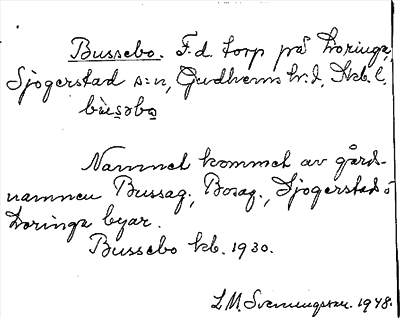 Bussebo. F.d. torp på Toringa,
Sjogerstad s:n, Gudhems hd,
bùsəbo
Namnet kommet av gårds-
namnen Bussag., Bosag., Sjogerstad o
Toringa byar.
Bussebo kb. 1930.
L.M. Svenungsson. 1948.